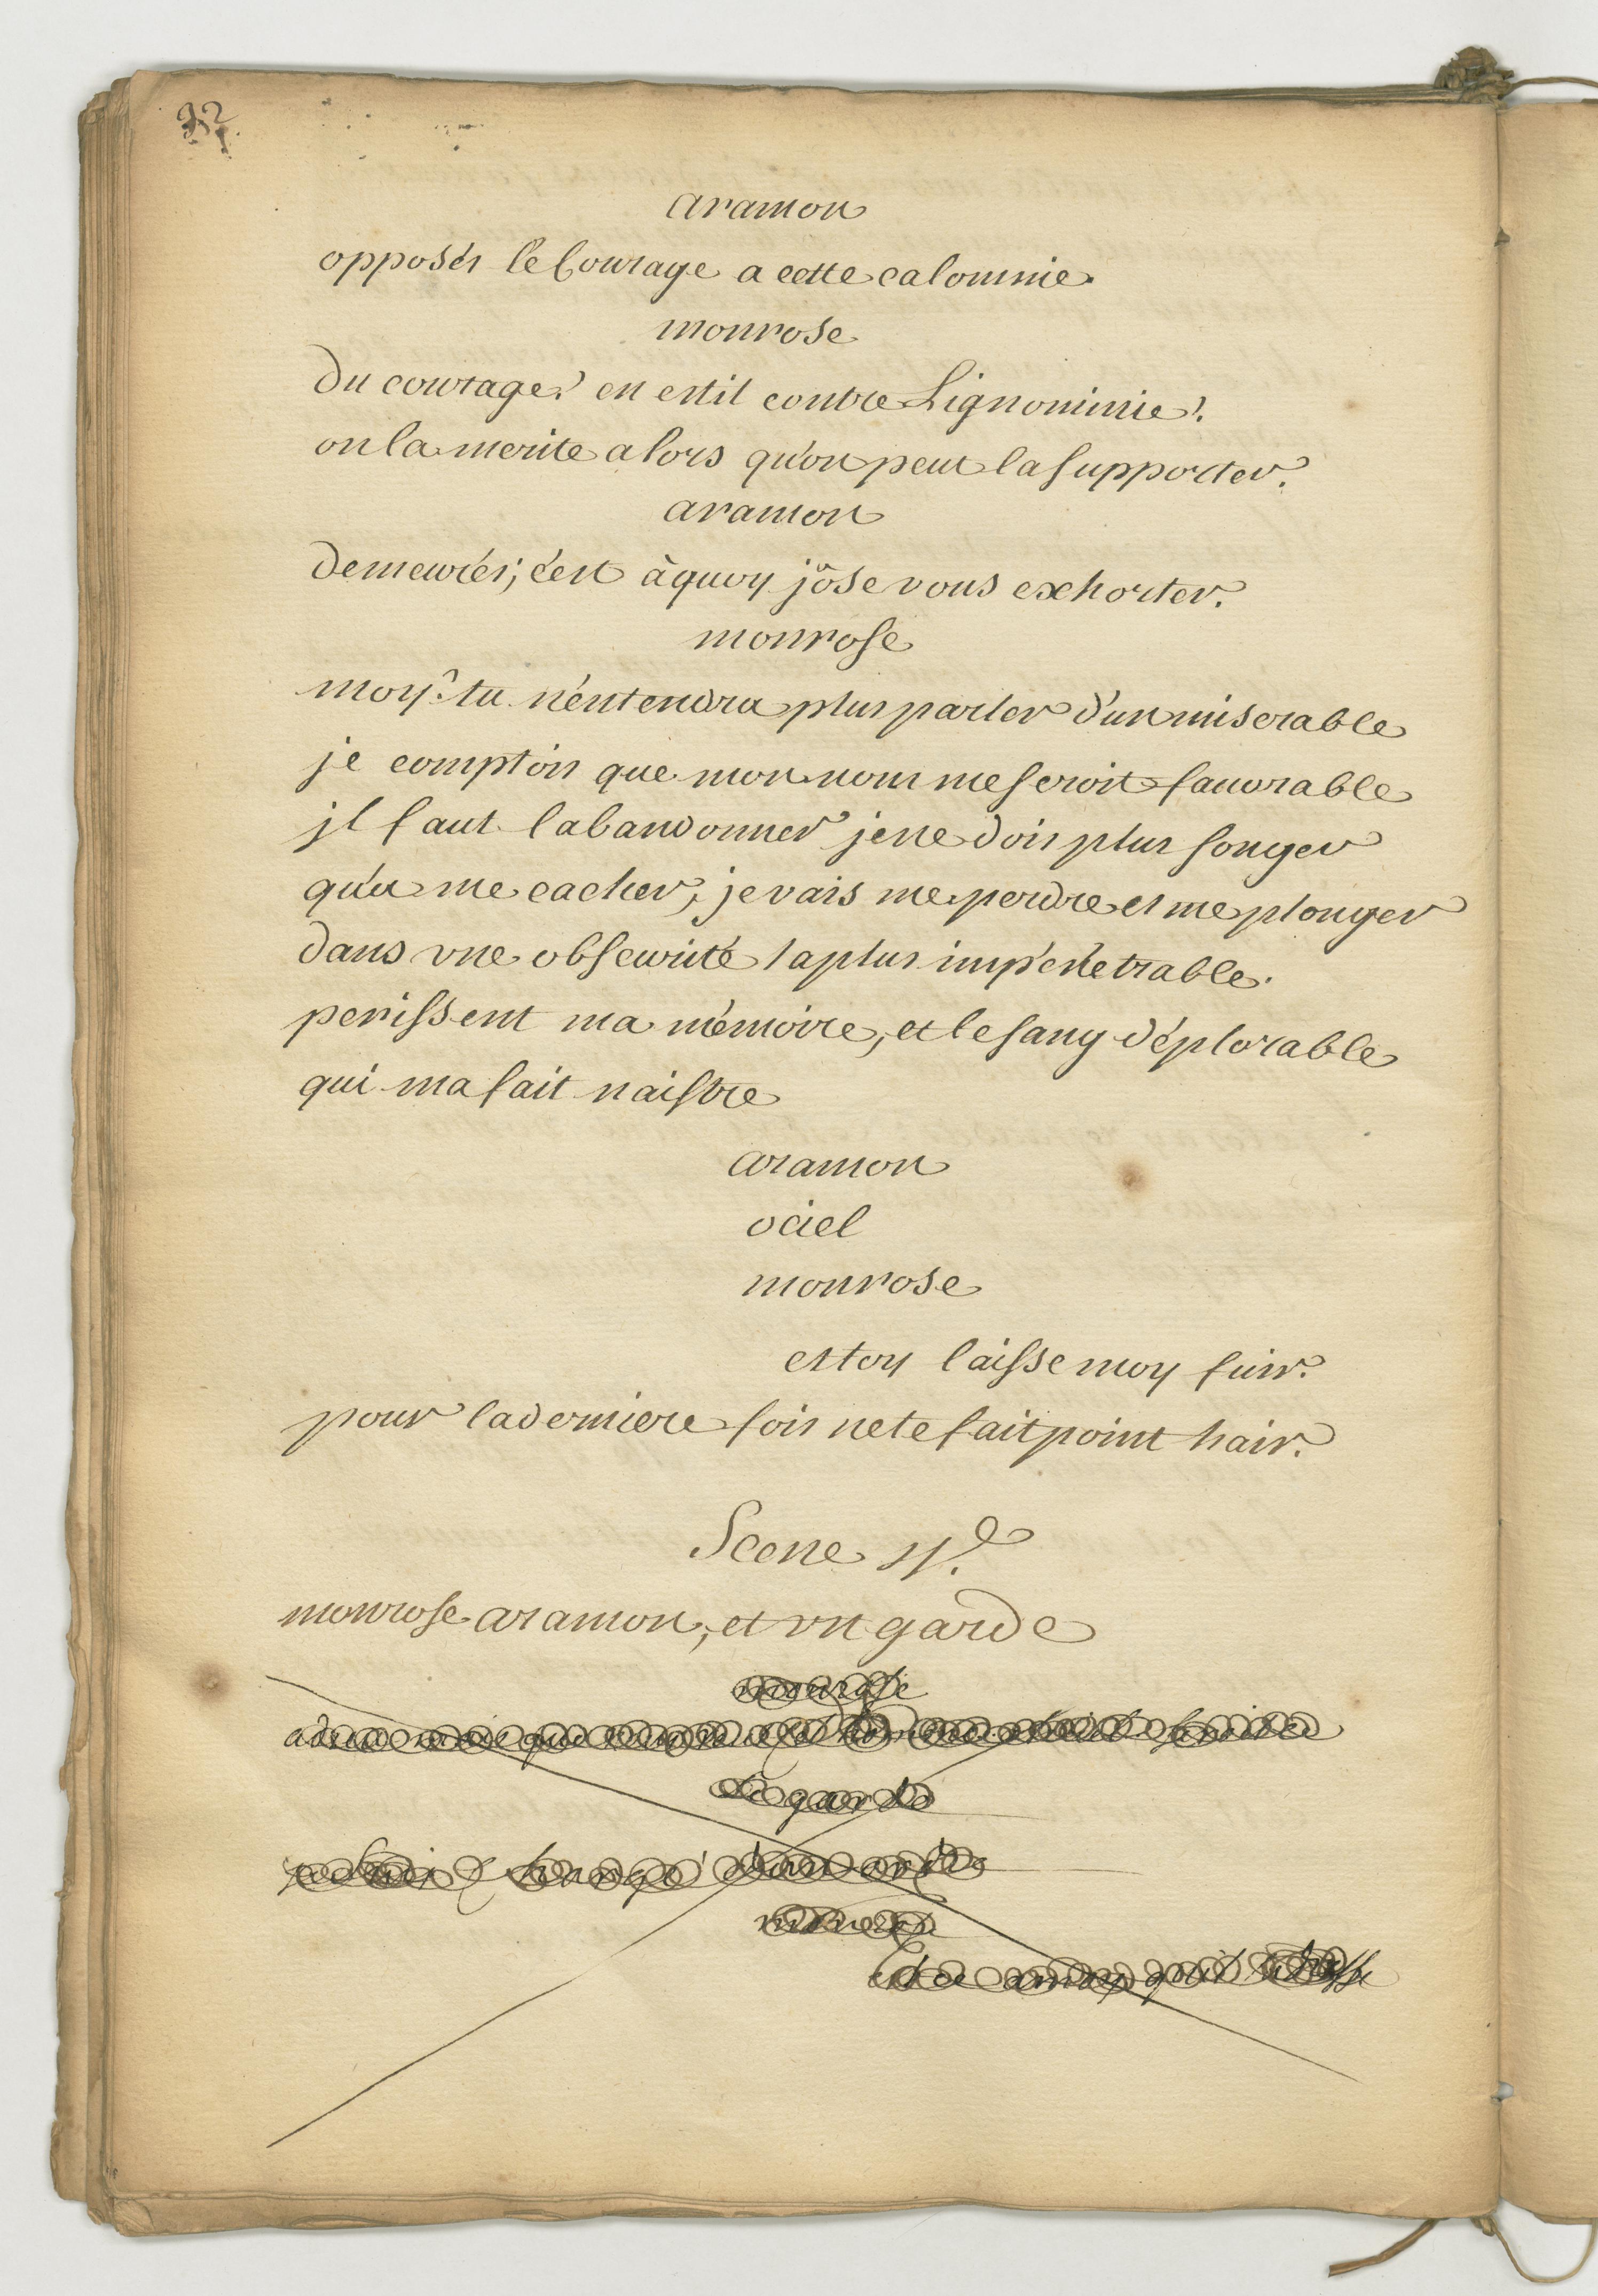 aramon
opposés le Courage a cette calomnie.
monrose
du courage? en estil contre Lignominie?
on la merite alors qu'on peut la supporter.
aramon
demeurés; c'est à quoy j'ôse vous exhorter.
monrose
moy? tu n'entendra plus parler d'un miserable
je comptois que mon nom me seroit favorable
jl faut labandonner je ne dois plus songer
qu'a me cacher, je vais me perdre et me plonger
dans vne obscurité la plus impénétrable.
perissent ma mémoire, et le sang déplorable
qui ma fait naistre
aramon
o ciel
monrose
et toy laisse moy fuir.
pour la derniere fois ne te fait point hair.
Scene
monrose aramon, et vn garde
monrose
le garde
chargé d'un ordre
monrose
est ce a moy qu'il